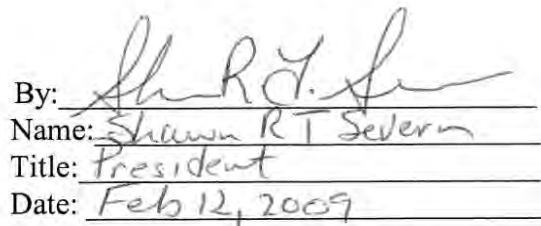 By:
Name: Shawn R T Severn
Title: President
Date: Feb 12, 2009